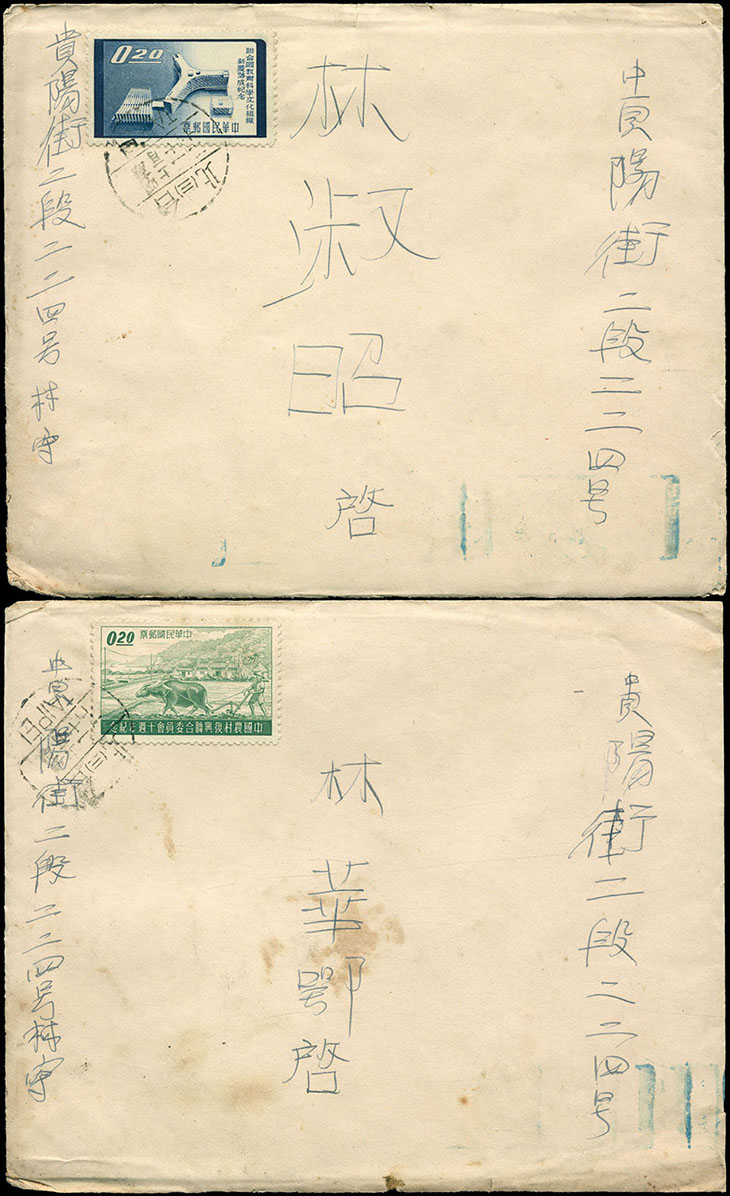 貴陽街二段二二四号
林淑昭啓
貴陽街二段二二四号林寄
0.20
聯合國教育科學文化組織
新廈落成紀念
中華民國郵票
貴陽街二段二二四号
林華鄂啓
貴陽街二段二二四号林寄
0.20
中華民國郵票
中國農村復興聯合委員會十週年紀念